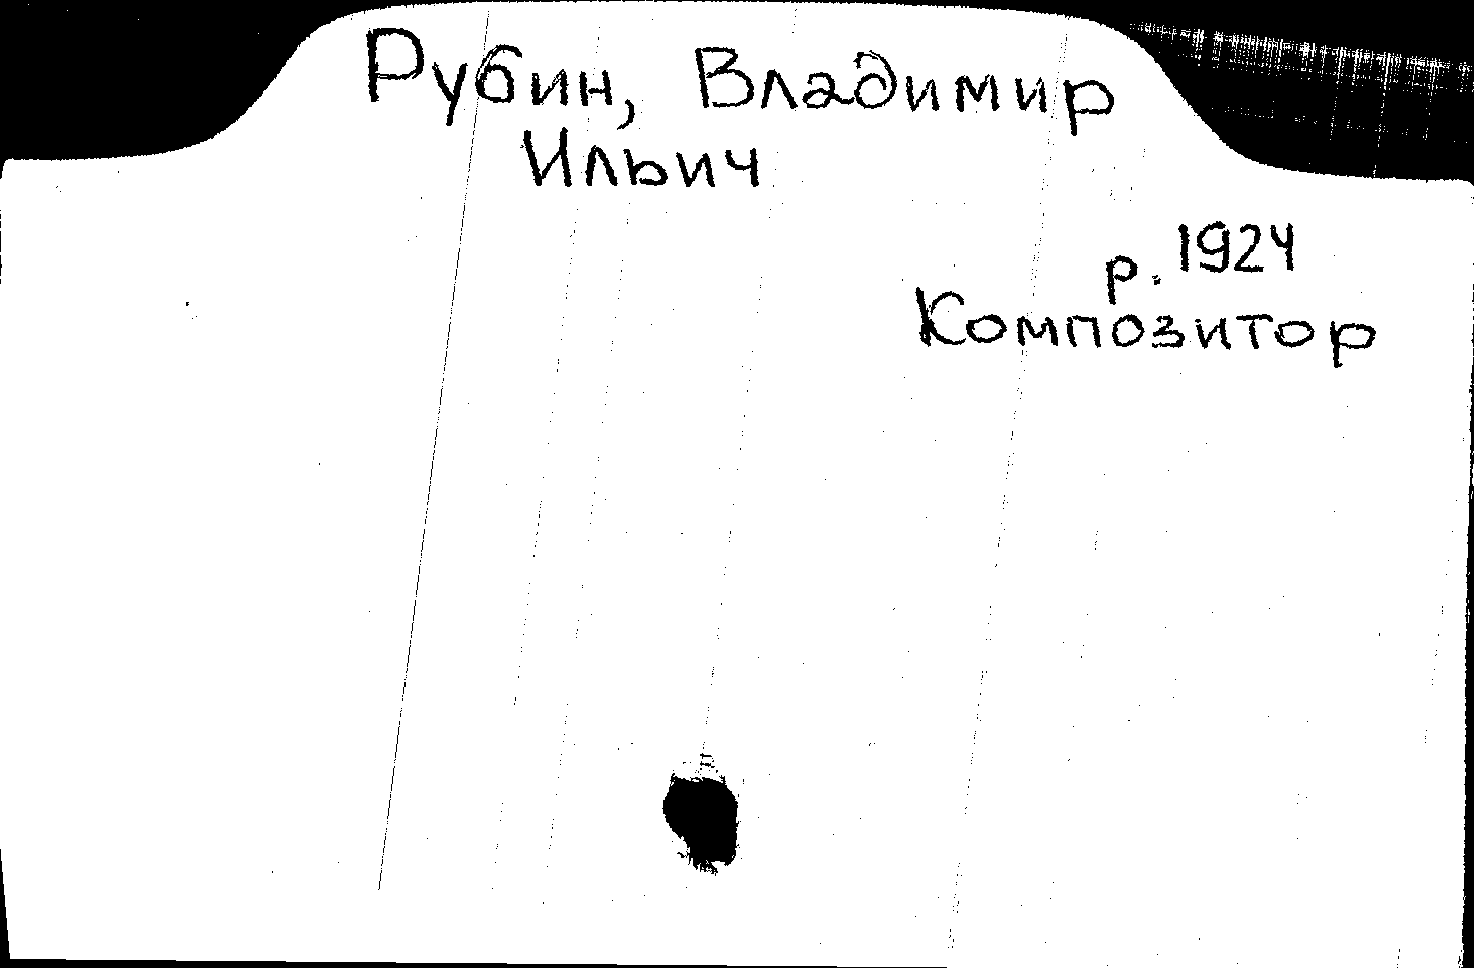 Рубин, Владимир
Ильич
р. 1924
Композитор